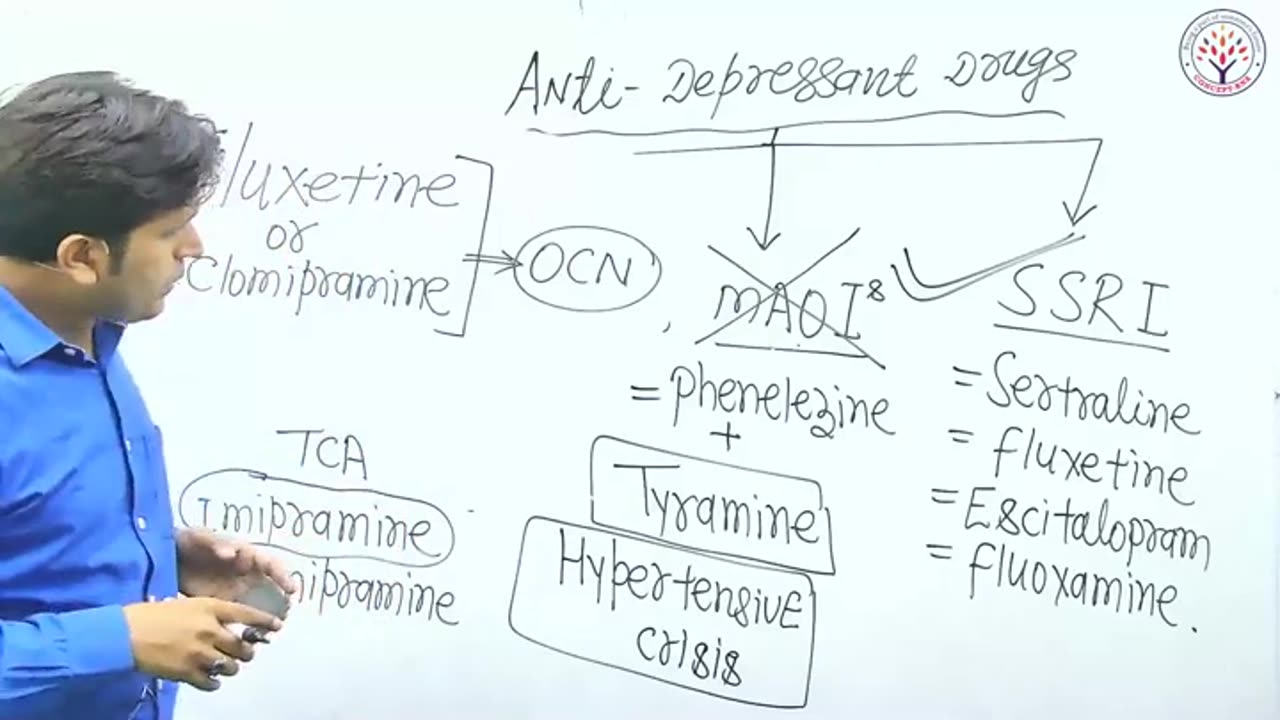 Anti-Depressant Drugs
Fluxetine
or
Clomipramine
OCN
, MAOIs
= Phenelezine
+
Tyramine
Hypertensive
crisis
SSRI
= Sertraline
= fluxetine
= Escitalopram
= fluoxamine.
TCA
Imipramine
mipramine
CONCEPT RNA